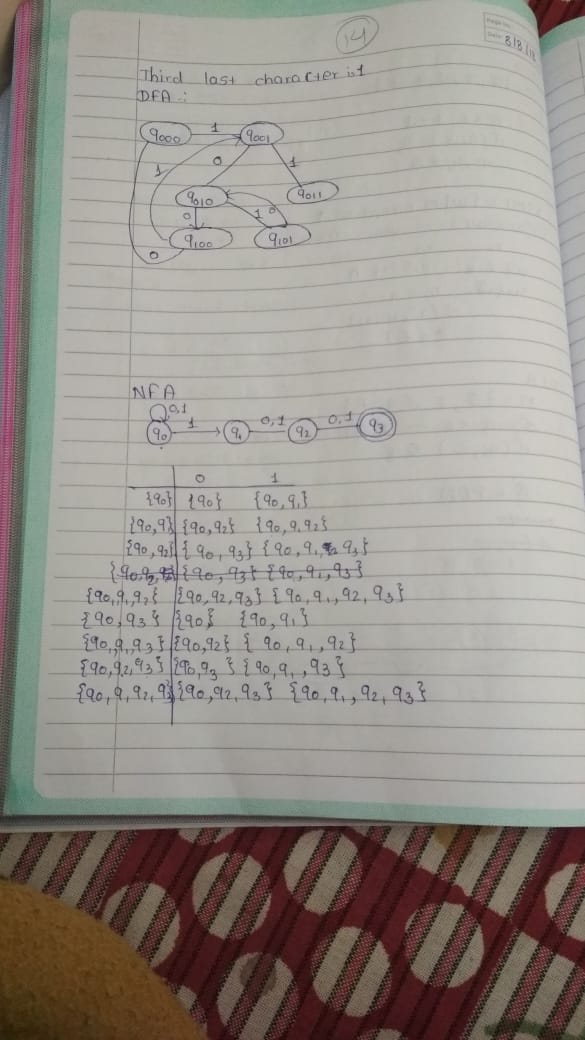 14
Page No.
Date 8/8/18
Third last character is 1
DFA :
q000 1 q001
1 0 1
q010 q011
0 1 0
q100 q101
0
NFA
0,1
q0 1 q1 0,1 q2 0,1 q3
0 1
{q0} {q0} {q0,q1}
{q0,q1} {q0,q2} {q0,q1,q2}
{q0,q2} {q0,q3} {q0,q1,q3}
{q0,q3} {q0,q1,q3}
{q0,q1,q2} {q0,q2,q3} {q0,q1,q2,q3}
{q0,q3} {q0} {q0,q1}
{q0,q1,q3} {q0,q2} {q0,q1,q2}
{q0,q2,q3} {q0,q3} {q0,q1,q3}
{q0,q1,q2,q3} {q0,q2,q3} {q0,q1,q2,q3}